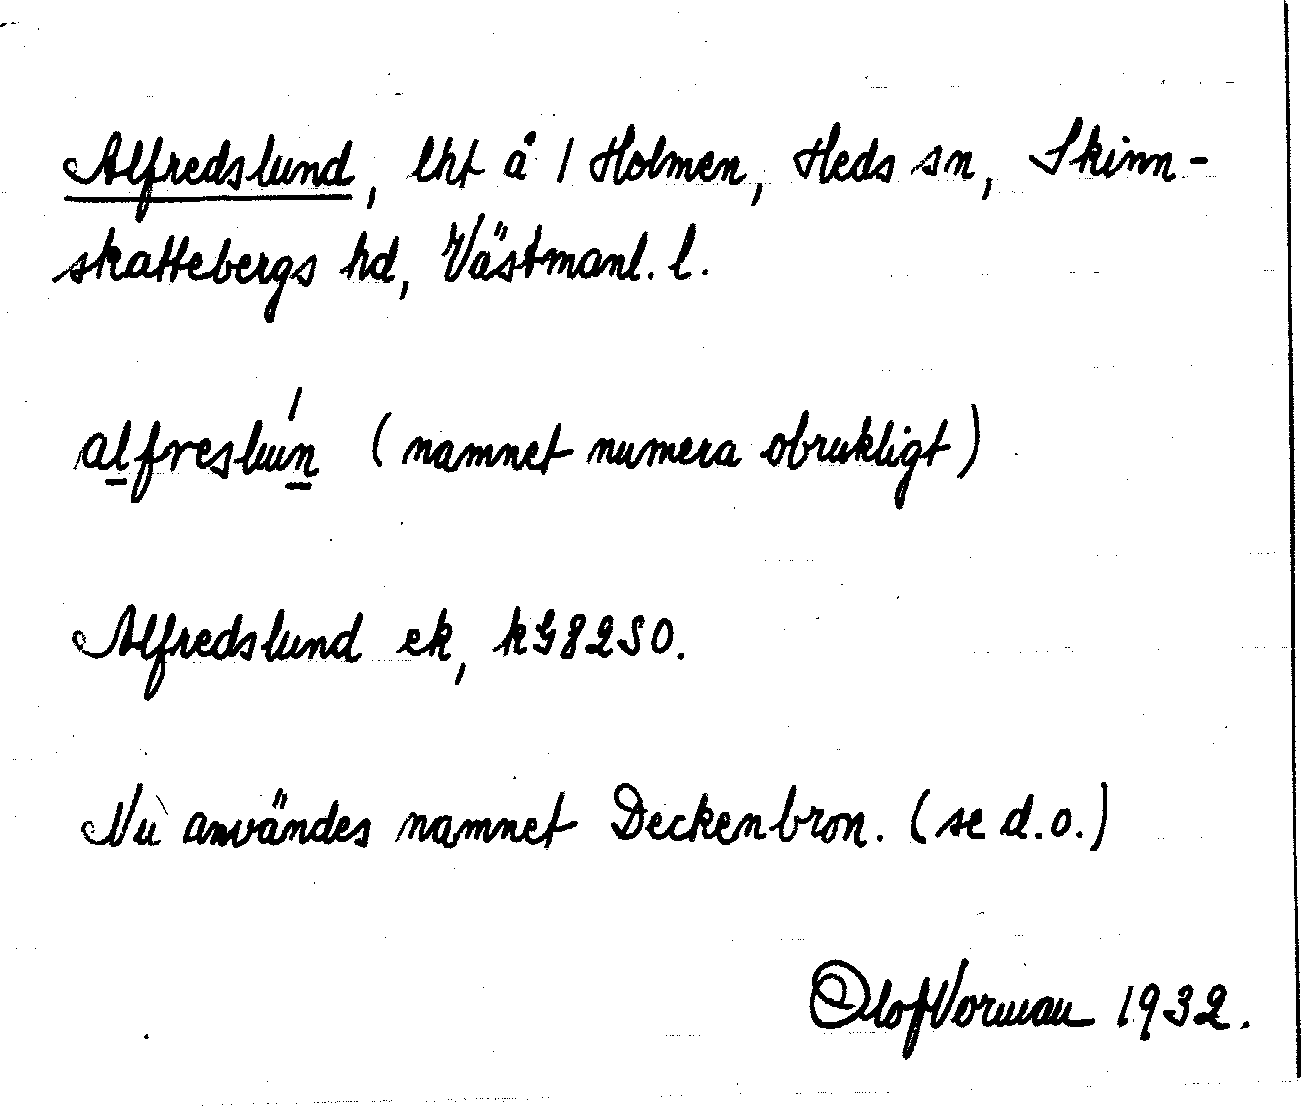 Alfredslund, lht å 1 Holmen, Heds sn, Skinn-
skattebergs hd, Västmanl. l.
alfreslún (namnet numera obrukligt)
Alfredslund ek, kG82SO.
Nu användes namnet Deckenbron. (se d.o.)
Olof Vorman 1932.